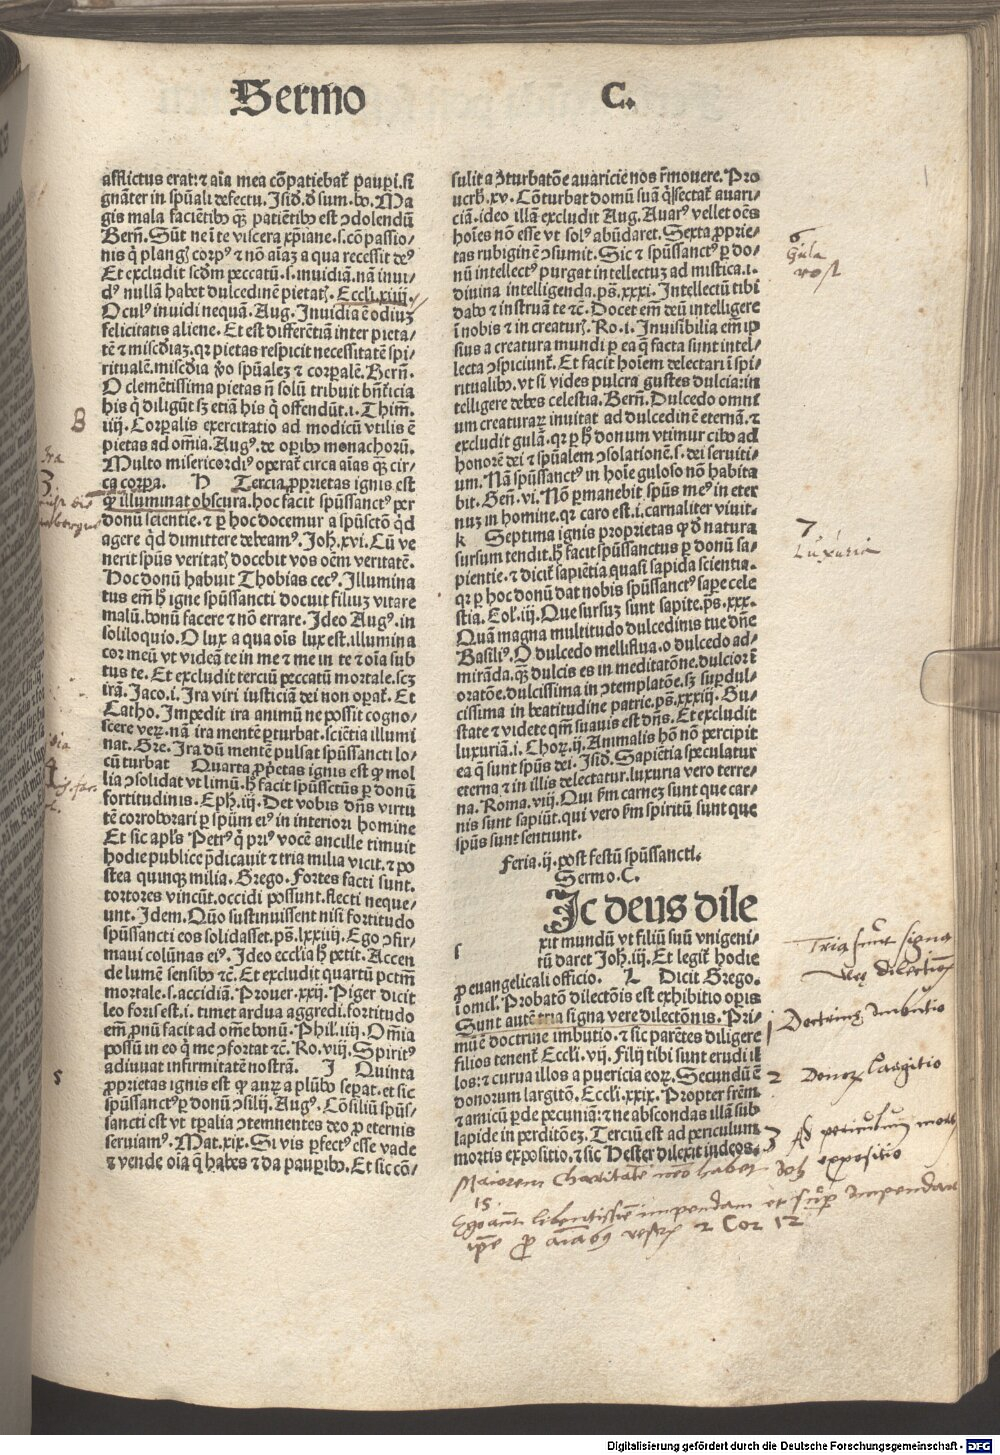 Sermo C.
afflictus erat: ⁊ aĩa mea cõpatiebat᷑ paupi. si
gnãter in spũali defectu. Isid. d̕ sum. bo. Ma
gis mala faciẽtibꝰ qꝫ patiẽtibꝰ est ↄdolendũ
Bern̄. Sũt ne ĩ te viscera xp̃iane. s. cõpassio-
nis q̇ plangꝭ corpꝰ ⁊ nõ aĩaꝫ a qua recessit deꝰ
Et excludit scd̃m peccatũ. s. inuidiã. nã inui
dꝰ nullã habet dulcedinẽ pietatꝭ. Eccli. xiiij.
Oculꝰ inuidi nequã. Aug. Inuidia ẽ odiuꝫ
felicitatis aliene. Et est differẽtia inter pieta-
tẽ ⁊ mĩscd̃iaꝫ. qꝛ pietas respicit necessitatẽ spi-
ritualẽ. mĩscd̃ia ṽo spũaleꝫ ⁊ corꝑalẽ. Bern̄.
O clemẽtissima pietas nõ solũ tribuit bñficia
his q̇ diligũt sꝫ etiã his q̇ offendũt. i. Thim̄.
iiij. Corꝑalis exercitatio ad modicũ vtilis ẽ
pietas ad om̃ia. Augꝰ. de opibꝰ monachorũ.
Multo misericordiꝰ operat᷑ circa aĩas qꝫ cir-
ca corꝑa. H Tercia ꝓprietas ignis est
ꝙ illuminat obscura. hoc facit spũssanctꝰ per
donũ scientie. ⁊ p hoc docemur a spũsctõ q̇d
agere q̇d dimittere debeamꝰ. Joh̃. xvi. Cũ ve
nerit spũs veritatꝭ docebit vos oẽm veritatẽ.
Hoc donũ habuit Thobias cecꝰ. Illumina
tus em̃ hͦ igne spũssancti docuit filiuꝫ vitare
malũ. bonũ facere ⁊ nõ errare. Ideo Augꝰ. in
soliloquio. O lux a qua oĩs lux est. illumina
cor meũ vt videã te in me ⁊ me in te ⁊ oĩa sub
tus te. Et excludit terciũ peccatũ mortale. scꝫ
irã. Jaco. i. Ira viri iusticiã dei non opat᷑. Et
Catho. Impedit ira animũ ne possit cogno-
scere veꝝ. nã ira mentẽ ꝑturbat. sciẽtia illumi
nat. Gre. Ira dũ mentẽ pulsat spũssancti lo-
cũ turbat Quarta ꝓp̃etas ignis est ꝙ mol
lia ↄsolidat vt limũ. hͦ facit spũssctũs ꝑ donũ
fortitudinis. Eph̃. iij. Det vobis dñs virtu
tẽ corroborari ꝑ spũm eiꝰ in interiori homine
Et sic apl̃s Petrꝰ q̇ priꝰ vocẽ ancille timuit
hodie publice p̃dicauit ⁊ tria milia vicit. ⁊ po
stea quinqꝫ milia. Grego. Fortes facti sunt.
tortores vincũt. occidi possunt. flecti neque-
unt. Idem. Qũo sustinuissent nisi fortitudo
spũssancti eos solidasset. ps̃. lxxiiij. Ego ↄfir-
maui colũnas eiꝰ. Ideo ecclia hͦ petit. Accen
de lumẽ sensibꝰ ⁊c̃. Et excludit quartũ pctm̃
mortale. s. accidiã. Prouer. xxij. Piger dicit
leo foris est. i. timet ardua aggredi. fortitudo
em̃ p̃nũ facit ad om̃e bonũ. Phil. iiij. Om̃ia
possũ in eo q̇ me ↄfortat ⁊c̃. Ro. viij. Spiritꝰ
adiuuat infirmitatẽ nostrã. I Quinta
ꝓprietas ignis est ꝙ auꝝ a plũbo sepat. et sic
spũssanctꝰ ꝑ donũ ↄsilij. Augꝰ. Cõsiliũ spũs-
sancti est vt tꝑalia ↄtemnentes deo ꝓ eternis
seruiamꝰ. Mat. xix. Si vis ꝑfectꝰ esse vade
⁊ vende oĩa q̃ habes ⁊ da paupibꝰ. Et sic cõ-
sulit a ꝑturbatõe auaricie nos r̃mouere. Pro
uerb̃. xv. Cõturbat domũ suã q̇ sectat᷑ auari-
ciã. ideo illã excludit Aug. Auarꝰ vellet oẽs
hoĩes nõ esse vt solꝰ abũdaret. Sexta ꝓprie-
tas rubiginẽ ↄsumit. Sic ⁊ spũssanctꝰ ꝑ do-
nũ intellectꝰ purgat intellectuꝫ ad mistica. i.
divina intelligenda. ps̃. xxxi. Intellectũ tibi
dabo ⁊ instruã te ⁊c̃. Docet em̃ deũ intelligere
ĩ nobis ⁊ in creaturꝭ. Ro. i. Inuisibilia em̃ ip
sius a creatura mundi ꝑ ea q̃ facta sunt intel-
lecta ↄspiciunt᷑. Et facit hoĩem delectari ĩ spi-
ritualibꝰ. vt si vides pulcra gustes dulcia: in
telligere debes celestia. Bern̄. Dulcedo omni
um creaturaꝝ inuitat ad dulcedinẽ eternã. ⁊
excludit gulã. qꝛ ꝑ hͦ donum vtimur cibo ad
honorẽ dei ⁊ spũalem ↄsolationẽ. s. dei seruiti-
um. Nã spũssanctꝰ in hoĩe guloso nõ habita
bit. Gen̄. vi. Nõ ꝑmanebit spũs meꝰ in eter
nuꝫ in homine. qꝛ caro est. i. carnaliter viuit.
K Septima ignis proprietas ꝙ d̕ natura
sursum tendit. hͦ facit spũssanctus ꝑ donũ sa-
pientie. ⁊ dicit᷑ sapiẽtia quasi sapida scientia.
qꝛ ꝑ hoc donũ dat nobis spũssanctꝰ saꝑe cele
stia. Col̃. iij. Que sursuꝫ sunt sapite. ps̃. xxx.
Quã magna multitudo dulcedinis tue dñe
Basiliꝰ. O dulcedo melliflua. o dulcedo ad-
mirãda. qꝫ dulcis es in meditatõne. dulcior ĩ
oratõne. dulcissima in ↄtemplatõne. sꝫ suꝑdul-
cissima in beatitudine patrie. ps̃. xxxiij. Gu-
state ⁊ videte qm̃ suauis est dñs. Et excludit
luxuriã. i. Choꝝ. ij. Animalis hõ nõ percipit
ea q̃ sunt spũs dei. Isid̃. Sapiẽtia speculatur
eterna ⁊ in illis delectatur. luxuria vero terre-
na. Roma. viij. Qui ẜm carneꝫ sunt que car-
nis sunt sapiũt. qui vero ẜm spiritũ sunt que
spũs sunt sentiunt.
Feria. ij. post festũ spũssancti.
Sermo. C.
Ic deus dile
xit mundũ vt filiũ suũ vnigeni-
tũ daret Joh̃. iij. Et legit᷑ hodie
ꝓ euangelicali officio. L Dicit Grego.
i omel̃. Probatõ dilectõis est exhibitio oꝑis
Sunt autẽ tria signa vere dilectõnis. Pri-
mũ ẽ doctrine imbutio. ⁊ sic parẽtes diligere
filios tenent᷑ Eccli. vij. Filij tibi sunt erudi il
los: ⁊ curua illos a puericia eoꝝ. Secundũ ẽ
donorum largitõ. Eccli. xxix. Propter frẽm
⁊ amicũ ꝑde pecuniã: ⁊ ne abscondas illã sub
lapide in perditõeꝫ. Terciũ est ad periculum
mortis expositio. ⁊ sic Hester dilexit iudeos.
s
B
3
4
5
6
Gula
7
Luxuria
Tria sunt signa
verę dilectionis
1 Doctrinę imbutio
2 Donoꝝ largitio
3 Ad periculum mortis
expositio
Maiorem charitatem nemo habet Joh
15.
Ego autem libentissime impendam et super impendar
ipse pro aĩabꝰ vestris 2 Cor 12
Digitalisierung gefördert durch die Deutsche Forschungsgemeinschaft - DFG